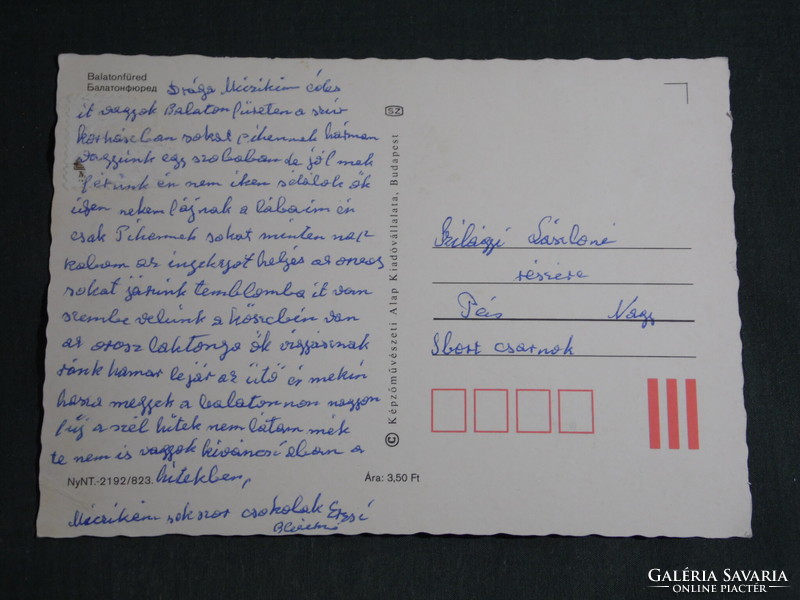 Balatonfüred
Балатонфюред
Drága Miczikém édes
it vagyok Balaton füreten a szív
korházban sokat pihennek hárman
vagyunk egy szobaban de jól mek
férünk én nem iken sétálok ők
igen nekem fájnak a lábaim én
csak Pihennek sokat minten nap
kabom az ingekzjót
sokat járunk temblomba it van
szembe velünk a közben van
az orosz laktonga ők vigyásznak
ránk hamar lejár az üdő és mekin
haza megyek a balatonnon nagyon
fúj a szél hitek nem látam mék
te nem is vagyok kiváncsi éban a
hitekben,
Miczikém sokszor csokolak Erzsi
NyNT.-2192/823.
Ára: 3,50 Ft
© Képzőművészeti Alap Kiadóvállalata, Budapest
SZ
Szilágyi Lászloné
részére
Pécs Nagy
Sbort csarnok
GALÉRIA SAVARIA
ONLINE PIACTÉR